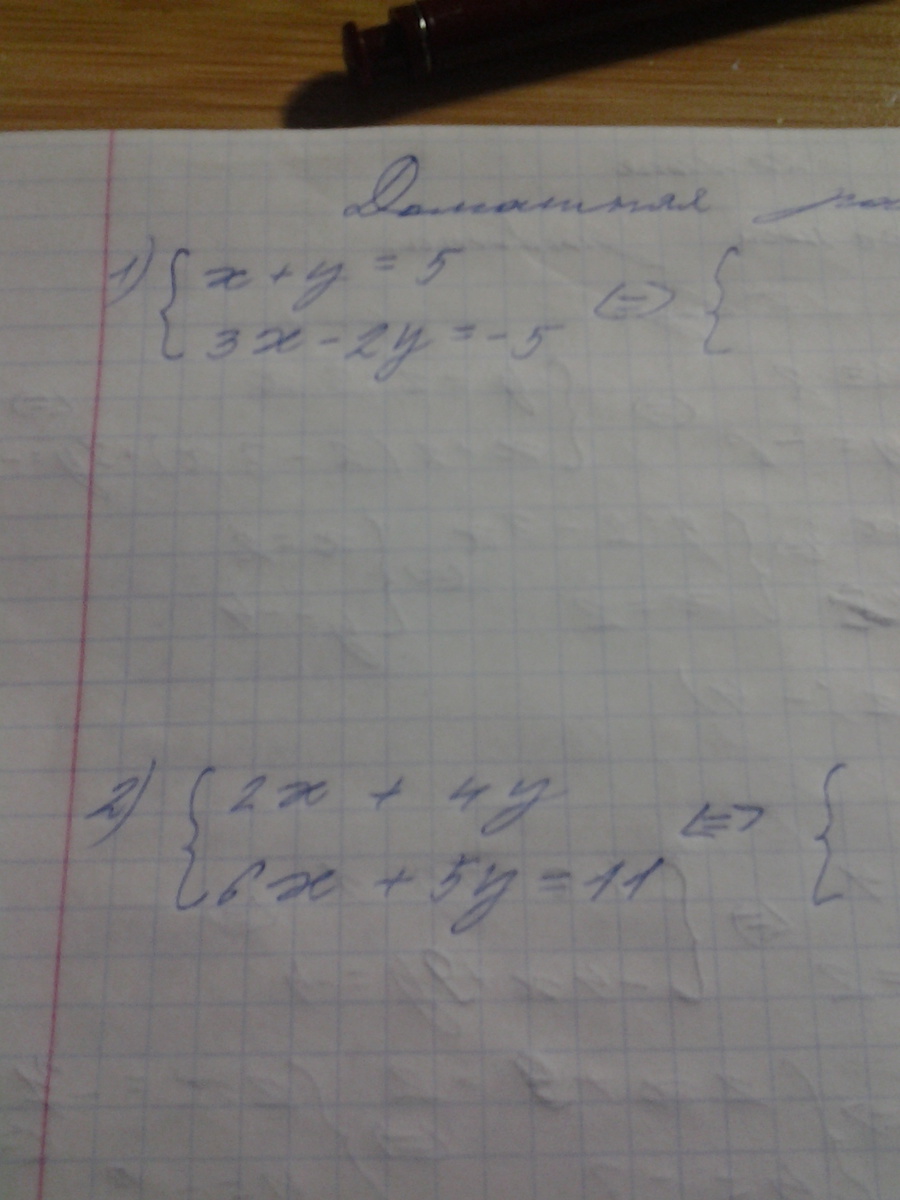 Домашняя
1) { x + y = 5
3x - 2y = -5 <=> {
2) { 2x + 4y
6x + 5y = 11 <=> {